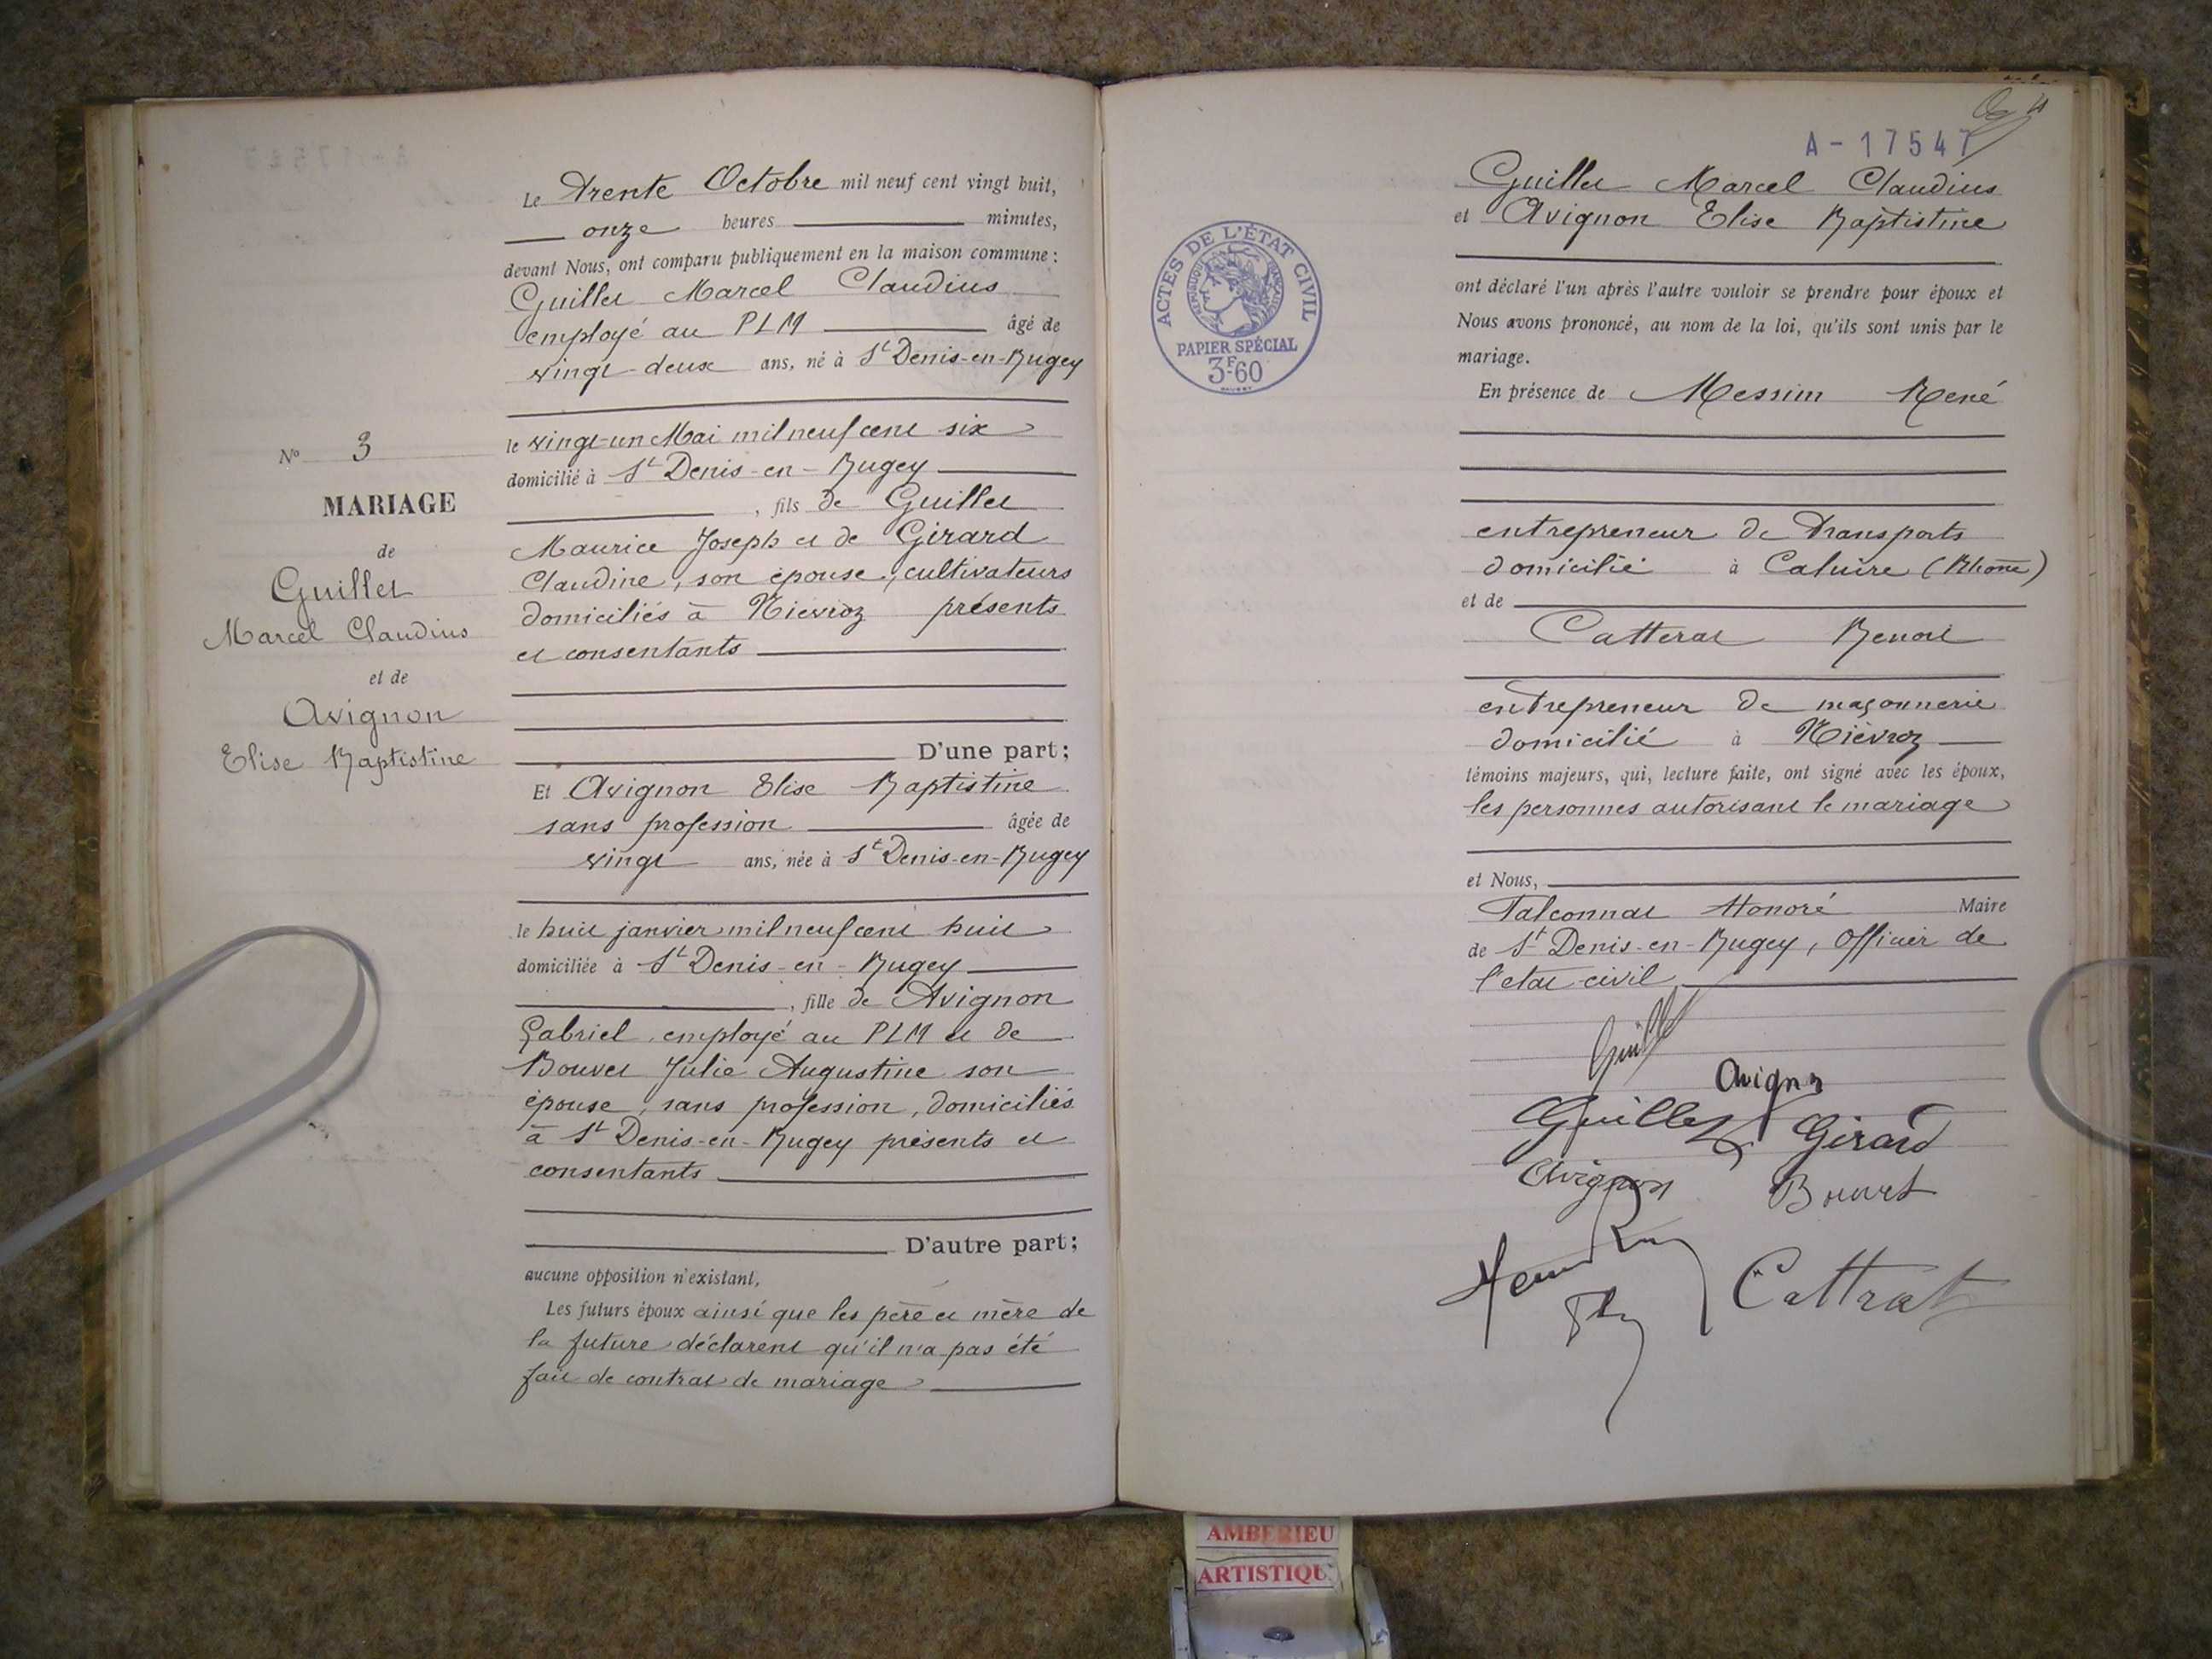 Le Trente Octobre mil neuf cent vingt huit,
onze heures minutes,
devant Nous, ont comparu publiquement en la maison commune :
Guillet Marcel Claudius
employé au PLM âgé de
vingt-deux ans, né à St Denis-en-Bugey
le vingt-un Mai mil neuf cent six
domicilié à St Denis-en-Bugey
, fils de Guillet
Maurice Joseph et de Girard
Claudine, son épouse, cultivateurs
domiciliés à Niévroz présents
et consentants
D'une part;
Et Avignon Elise Baptistine
sans profession âgée de
vingt ans, née à St Denis-en-Bugey
le huit janvier mil neuf cent huit
domiciliée à St Denis-en-Bugey
, fille de Avignon
Gabriel employé au PLM et de
Bouvet Julie Augustine son
épouse, sans profession, domiciliés
à St Denis-en-Bugey présents et
consentants
D'autre part;
aucune opposition n'existant,
Les futurs époux ainsi que les père et mère de
la future déclarent qu'il n'a pas été
fait de contrat de mariage
No 3
MARIAGE
de
Guillet
Marcel Claudius
et de
Avignon
Elise Baptistine
A-17547
ACTES DE L'ÉTAT CIVIL
RÉPUBLIQUE FRANÇAISE
PAPIER SPÉCIAL
3F60
Guillet Marcel Claudius
et Avignon Elise Baptistine
ont déclaré l'un après l'autre vouloir se prendre pour époux et
Nous avons prononcé, au nom de la loi, qu'ils sont unis par le
mariage.
En présence de Messim René
entrepreneur de Transports
domicilié à Caluire (Rhône)
et de
Catterat Benoit
entrepreneur de maçonnerie
domicilié à Niévroz
témoins majeurs, qui, lecture faite, ont signé avec les époux,
les personnes autorisant le mariage
et Nous,
Falconnat Honoré Maire
de St Denis-en-Bugey, Officier de
l'etat civil
Guillet
Avignon
Guillet Girard
Avignon Bouvet
Cattrat
AMBERIEU
ARTISTIQU